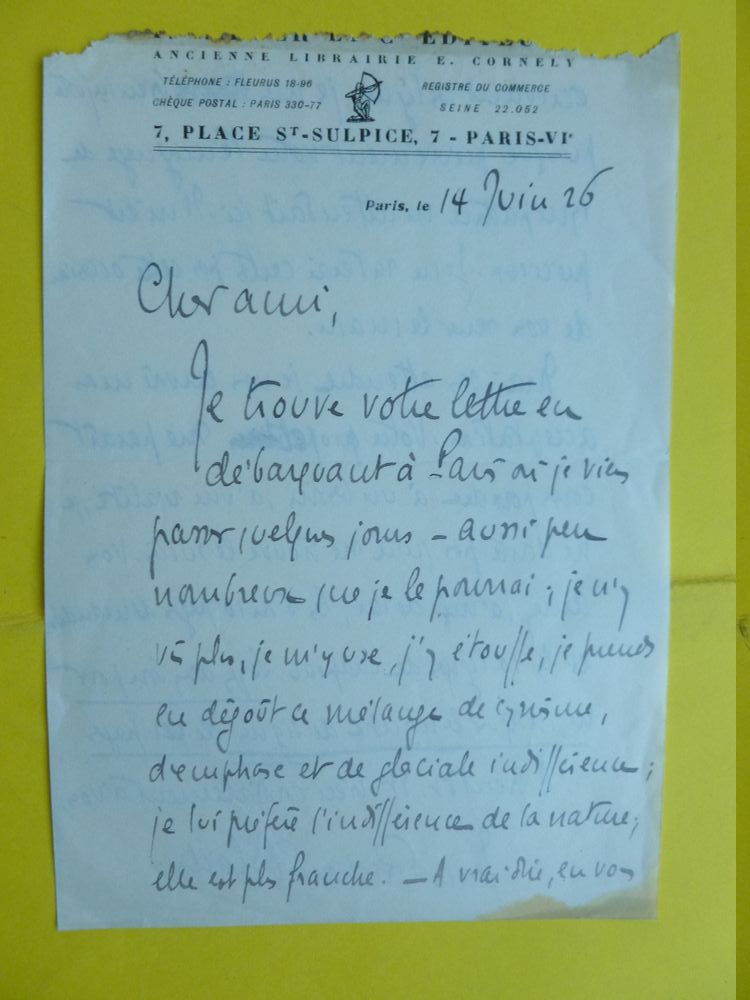 ANCIENNE LIBRAIRIE E. CORNELY
TÉLÉPHONE : FLEURUS 18-96
CHÈQUE POSTAL : PARIS 330-77
REGISTRE DU COMMERCE
SEINE 22.052
7, PLACE ST-SULPICE, 7 - PARIS-VIe
Paris, le 14 Juin 26
Cher ami,
Je trouve votre lettre en
débarquant à Paris où je viens
passer quelques jours – aussi peu
nombreux que je le pourrai ; je n'y
vis plus, je m'y use, j'y étouffe, je prends
en dégoût ce mélange de cynisme,
d'emphase et de glaciale indifférence ;
je lui préfère l'indifférence de la nature,
elle est plus franche. — A vrai dire, en vos